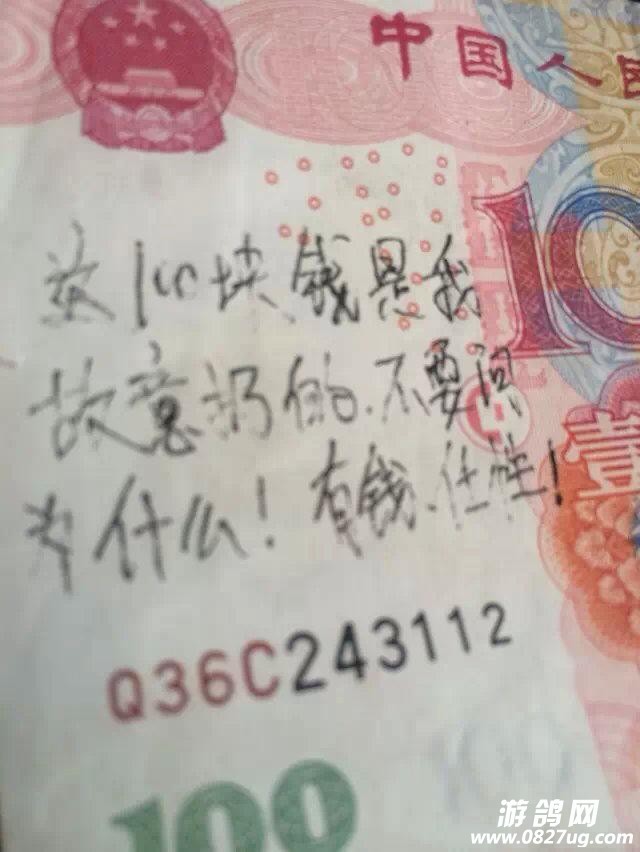 中国人民
10
这100块钱是我
故意扔的.不要问
为什么！有钱.任性！
壹
Q36C243112
100
100
游鸽网
www.0827ug.com